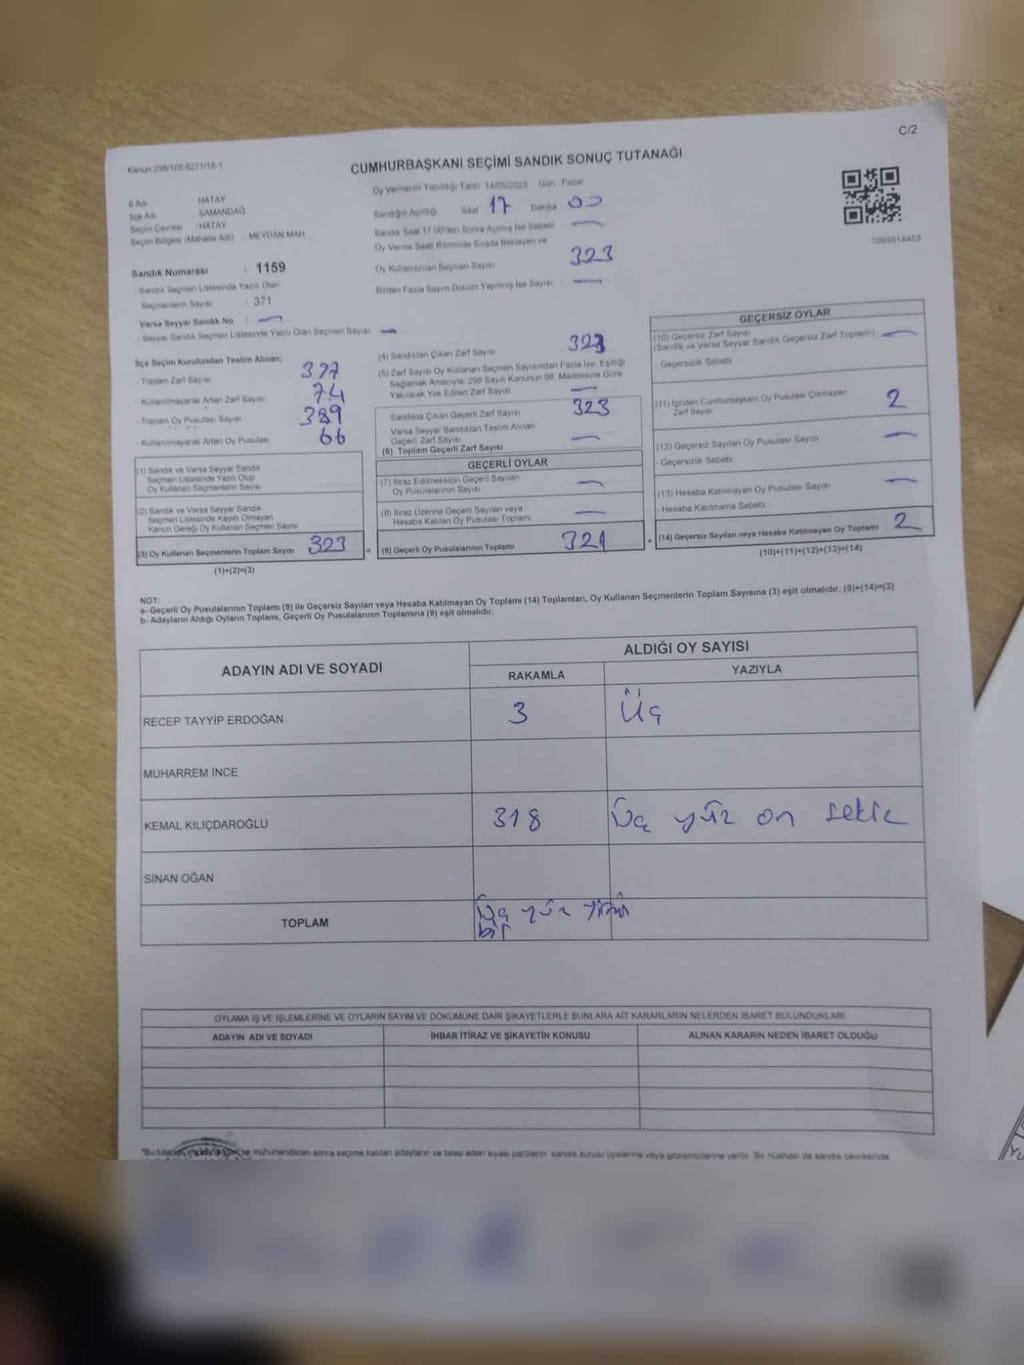 C/2
Kanun:298/105 6271/18-1
CUMHURBAŞKANI SEÇİMİ SANDIK SONUÇ TUTANAĞI
İl Adı HATAY
İlçe Adı SAMANDAĞ
Seçim Çevresi : HATAY
Seçim Bölgesi (Mahalle Adı) : MEYDAN MAH.
Sandık Numarası : 1159
- Sandık Seçmen Listesinde Yazılı Olan
Seçmenlerin Sayısı : 371
Varsa Seyyar Sandık No : —
- Seyyar Sandık Seçmen Listesinde Yazılı Olan Seçmen Sayısı : —
Oy Vermenin Yapıldığı Tarih 14/05/2023 Gün Pazar
Sandığın Açıldığı Saat 17 Dakika 00
Sandık Saat 17:00'den Sonra Açılmış İse Sebebi —
Oy Verme Saati Bitiminde Sırada Bekleyen ve
Oy Kullandırılan Seçmen Sayısı 323
Birden Fazla Sayım Döküm Yapılmış İse Sayısı —
1093814453
İlçe Seçim Kurulundan Teslim Alınan;
- Toplam Zarf Sayısı
- Kullanılmayarak Artan Zarf Sayısı 74
- Toplam Oy Pusulası Sayısı 389
- Kullanılmayarak Artan Oy Pusulası 66
(1) Sandık ve Varsa Seyyar Sandık
Seçmen Listesinde Yazılı Olup
Oy Kullanan Seçmenlerin Sayısı
(2) Sandık ve Varsa Seyyar Sandık
Seçmen Listesinde Kayıtlı Olmayan
Kanun Gereği Oy Kullanan Seçmen Sayısı
(3) Oy Kullanan Seçmenlerin Toplam Sayısı 323
(1)+(2)=(3)
(4) Sandıktan Çıkan Zarf Sayısı 323
(5) Zarf Sayısı Oy Kullanan Seçmen Sayısından Fazla İse, Eşitliği
Sağlamak Amacıyla, 298 Sayılı Kanunun 98. Maddesine Göre
Yakılarak Yok Edilen Zarf Sayısı —
Sandıkta Çıkan Geçerli Zarf Sayısı 323
Varsa Seyyar Sandıktan Teslim Alınan
Geçerli Zarf Sayısı —
(6) Toplam Geçerli Zarf Sayısı
GEÇERLİ OYLAR
(7) İtiraz Edilmeksizin Geçerli Sayılan
Oy Pusulalarının Sayısı —
(8) İtiraz Üzerine Geçerli Sayılan veya
Hesaba Katılan Oy Pusulası Toplamı —
= (9) Geçerli Oy Pusulalarının Toplamı 321
GEÇERSİZ OYLAR
(10) Geçersiz Zarf Sayısı
(Sandık ve Varsa Seyyar Sandık Geçersiz Zarf Toplamı) —
- Geçersizlik Sebebi
(11) İçinden Cumhurbaşkanı Oy Pusulası Çıkmayan
Zarf Sayısı 2
(12) Geçersiz Sayılan Oy Pusulası Sayısı —
- Geçersizlik Sebebi
(13) Hesaba Katılmayan Oy Pusulası Sayısı —
- Hesaba Katılmama Sebebi
+ (14) Geçersiz Sayılan veya Hesaba Katılmayan Oy Toplamı 2
(10)+(11)+(12)+(13)=(14)
NOT:
a- Geçerli Oy Pusulalarının Toplamı (9) ile Geçersiz Sayılan veya Hesaba Katılmayan Oy Toplamı (14) Toplamları, Oy Kullanan Seçmenlerin Toplam Sayısına (3) eşit olmalıdır. (9)+(14)=(3)
b- Adayların Aldığı Oyların Toplamı, Geçerli Oy Pusulalarının Toplamına (9) eşit olmalıdır.
ADAYIN ADI VE SOYADI ALDIĞI OY SAYISI
RAKAMLA YAZIYLA
RECEP TAYYİP ERDOĞAN 3 Üç
MUHARREM İNCE
KEMAL KILIÇDAROĞLU 318 Üç yüz on sekiz
SİNAN OĞAN
TOPLAM Üç yüz yirmi
bir
OYLAMA İŞ VE İŞLEMLERİNE VE OYLARIN SAYIM VE DÖKÜMÜNE DAİR ŞİKAYETLERLE BUNLARA AİT KARARLARIN NELERDEN İBARET BULUNDUKLARI
ADAYIN ADI VE SOYADI İHBAR İTİRAZ VE ŞİKAYETİN KONUSU ALINAN KARARIN NEDEN İBARET OLDUĞU
mühürlendikten sonra seçime katılan adayların ve talep eden siyasi partilerin sandık kurulu üyelerine veya gözlemcilerine verilir. Bir nüshası da sandık çevresinde